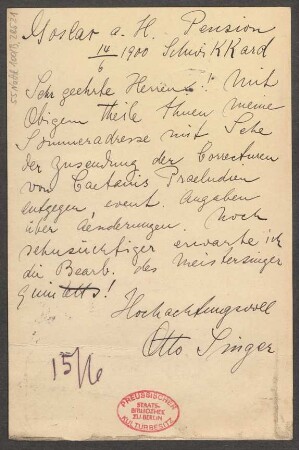 Goslar a. H. Pension
14/6 1900 Schwikkard
Sehr geehrte Herren! Mit
Obigem theile Ihnen meine
Sommeradresse mit Sehe
der Zusendung der Correcturen
von Caetanis Praeludien
entgegen event. Angaben
über Aenderungen. Noch
sehnsüchtiger erwarte ich
die Bearb. des Meistersinger
Quintetts!
Hochachtungsvoll
Otto Singer
15/6
PREUSSISCHER
STAATS-
BIBLIOTHEK
ZU BERLIN
KULTURBESITZ